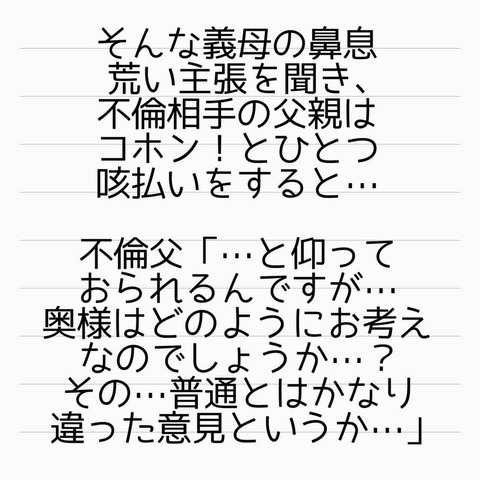 そんな義母の鼻息
荒い主張を聞き、
不倫相手の父親は
コホン！とひとつ
咳払いをすると…
不倫父「…と仰って
おられるんですが…
奥様はどのようにお考え
なのでしょうか…？
その…普通とはかなり
違った意見というか…」